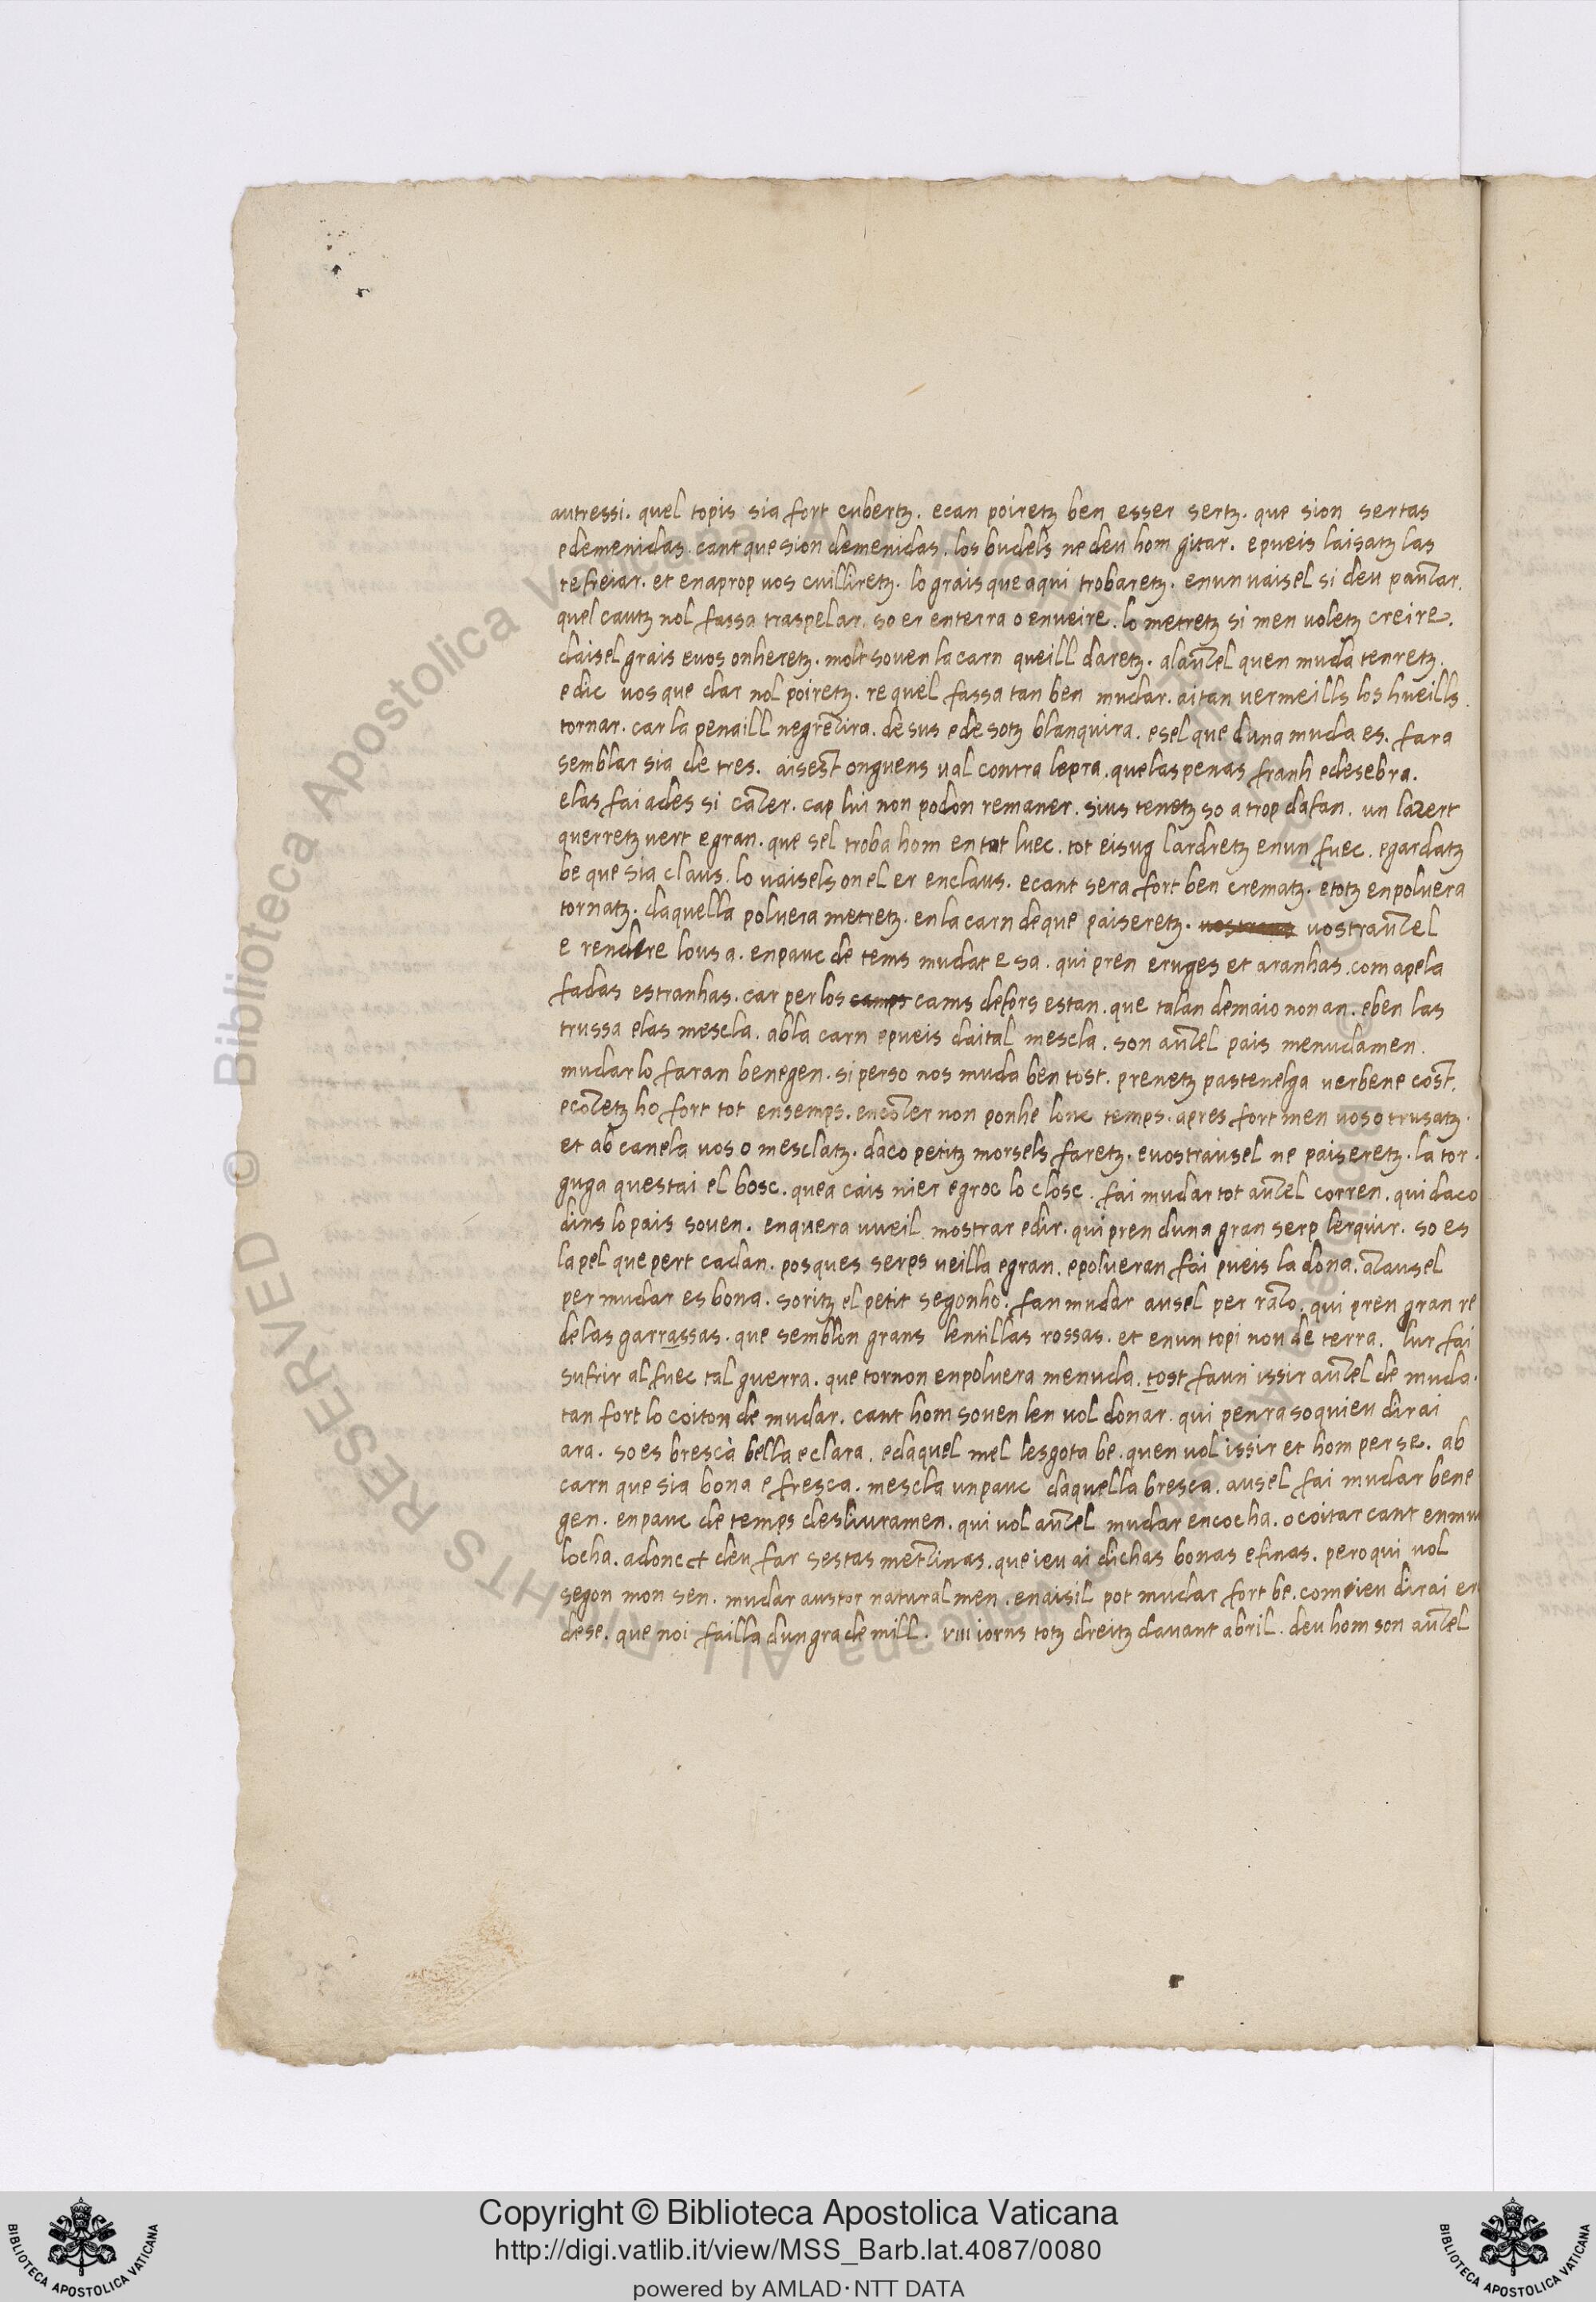 autressi. quel topis sia fort cubertz. ecan poiretz ben esser sertz. que sion sertas
edemenidas. cant que sion demenidas. los budels ne deu hom gitar. epueis laisatz las
refreiar. et enaprop uos cuilliretz. lo grais que aqui trobaretz. enun uaisel si deu pauzar.
quel cautz nol fassa traspelar. so er enterra o enueire. lo metretz si men uoletz creire.
daisel grais euos onheretz. molt souen la carn queill daretz. alauzel quen muda tenretz.
edic uos que dar nol poiretz. re queil fassa tan ben mudar. aitan uermeills los hueills
tornar. car la penaill negrezira. desus edesotz blanquira. esel que duna muda es. fara
semblar sia de tres. aisest onguens ual contra lepra. quelas penas franh edesebra.
elas fai ades si cazer. cap lui non podon remaner. sius tenetz so a trop dafan. un lazert
querretz uert egran. que sel troba hom en tot luec. tot eisug lardretz enun fuec. egardatz
be que sia claus. lo uaisels on el er enclaus. ecant sera fort ben crematz. etotz enpoluera
tornatz. daquella poluera metretz. en la carn de que paiseretz. uostrauzel
e rendere lous a. enpauc de tems mudat e sa. qui pren eruges et aranhas. com apela
fadas estranhas. car per los camps cams defors estan. que talan demaio non an. eben las
trussa elas mescla. abla carn epueis daital mescla. son auzel pais menudamen.
mudar lo faran benegen. si perso nos muda ben tost. prenetz pastenelga uerbene cost.
ecozetz ho fort tot ensemps. encozer non ponhe lonc temps. apres fort men uos o trusatz.
et ab canela uos o mesclatz. daco petitz morsels faretz. euostrausel ne paiseretz. la tor.
guga questai el bosc. quea cais nier egroc lo closc. fai mudar tot auzel corren. qui daco
dins lo pais souen. enquera uueil mostrar edir. qui pren duna gran serp lerquir. so es
la pel que pert cadan. pos ques serps ueilla egran. epolueran fai pueis la dona. azausel
per mudar es bona. soritz el petit segonho. fan mudar ausel per razo. qui pren gran re
delas garrassas. que semblon grans lentillas rossas. et enun topi nou de terra. lur fai
sufrir al fuec tal guerra. que tornon enpoluera menuda. tost faun issir auzel de muda.
tan fort lo coiton de mudar. cant hom souen len uol donar. qui penra so quieu dirai
ara. so es bresca bella eclara. edaquel mel lesgota be. quen uol issir et hom per se. ab
carn que sia bona e fresca. mescla un pauc daquella bresca. ausel fai mudar bene
gen. enpauc de temps desliuramen. qui uol auzel mudar encocha. ocoitar cant enmu
locha. adonc et deu far sestas metzinas. que ieu ai dichas bonas efinas. pero qui uol
segon mon sen. mudar austor naturalmen. enaisil pot mudar fort be. com ieu dirai er
dese. que noi failla dun gra de mill. VIII iorns totz dreitz dauant abril. deu hom son auzel
Copyright © Biblioteca Apostolica Vaticana
http://digi.vatlib.it/view/MSS_Barb.lat.4087/0080
powered by AMLAD·NTT DATA